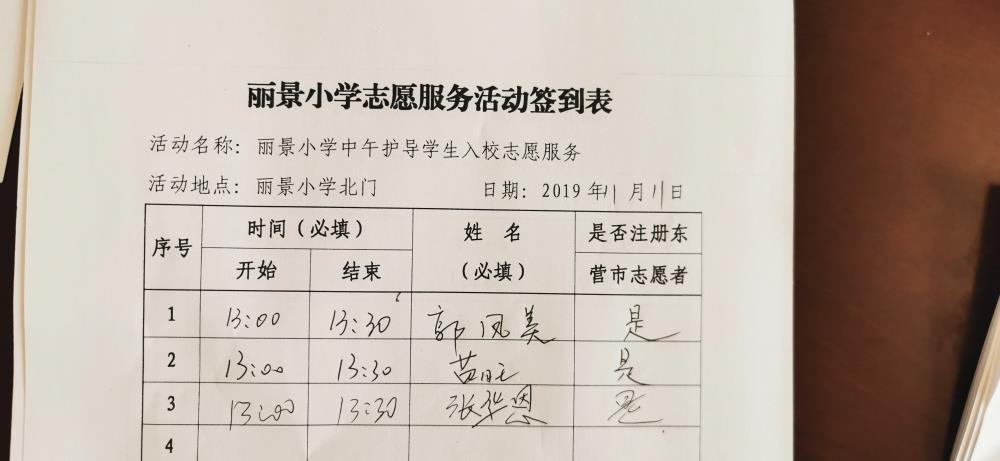 丽景小学志愿服务活动签到表
活动名称：丽景小学中午护导学生入校志愿服务
活动地点：丽景小学北门 日期：2019年11月11日
序号 时间（必填） 姓名（必填） 是否注册东营市志愿者
开始 结束
1 13:00 13:30 郭凤美 是
2 13:00 13:30 苗旺 是
3 13:00 13:30 张华恩 是
4